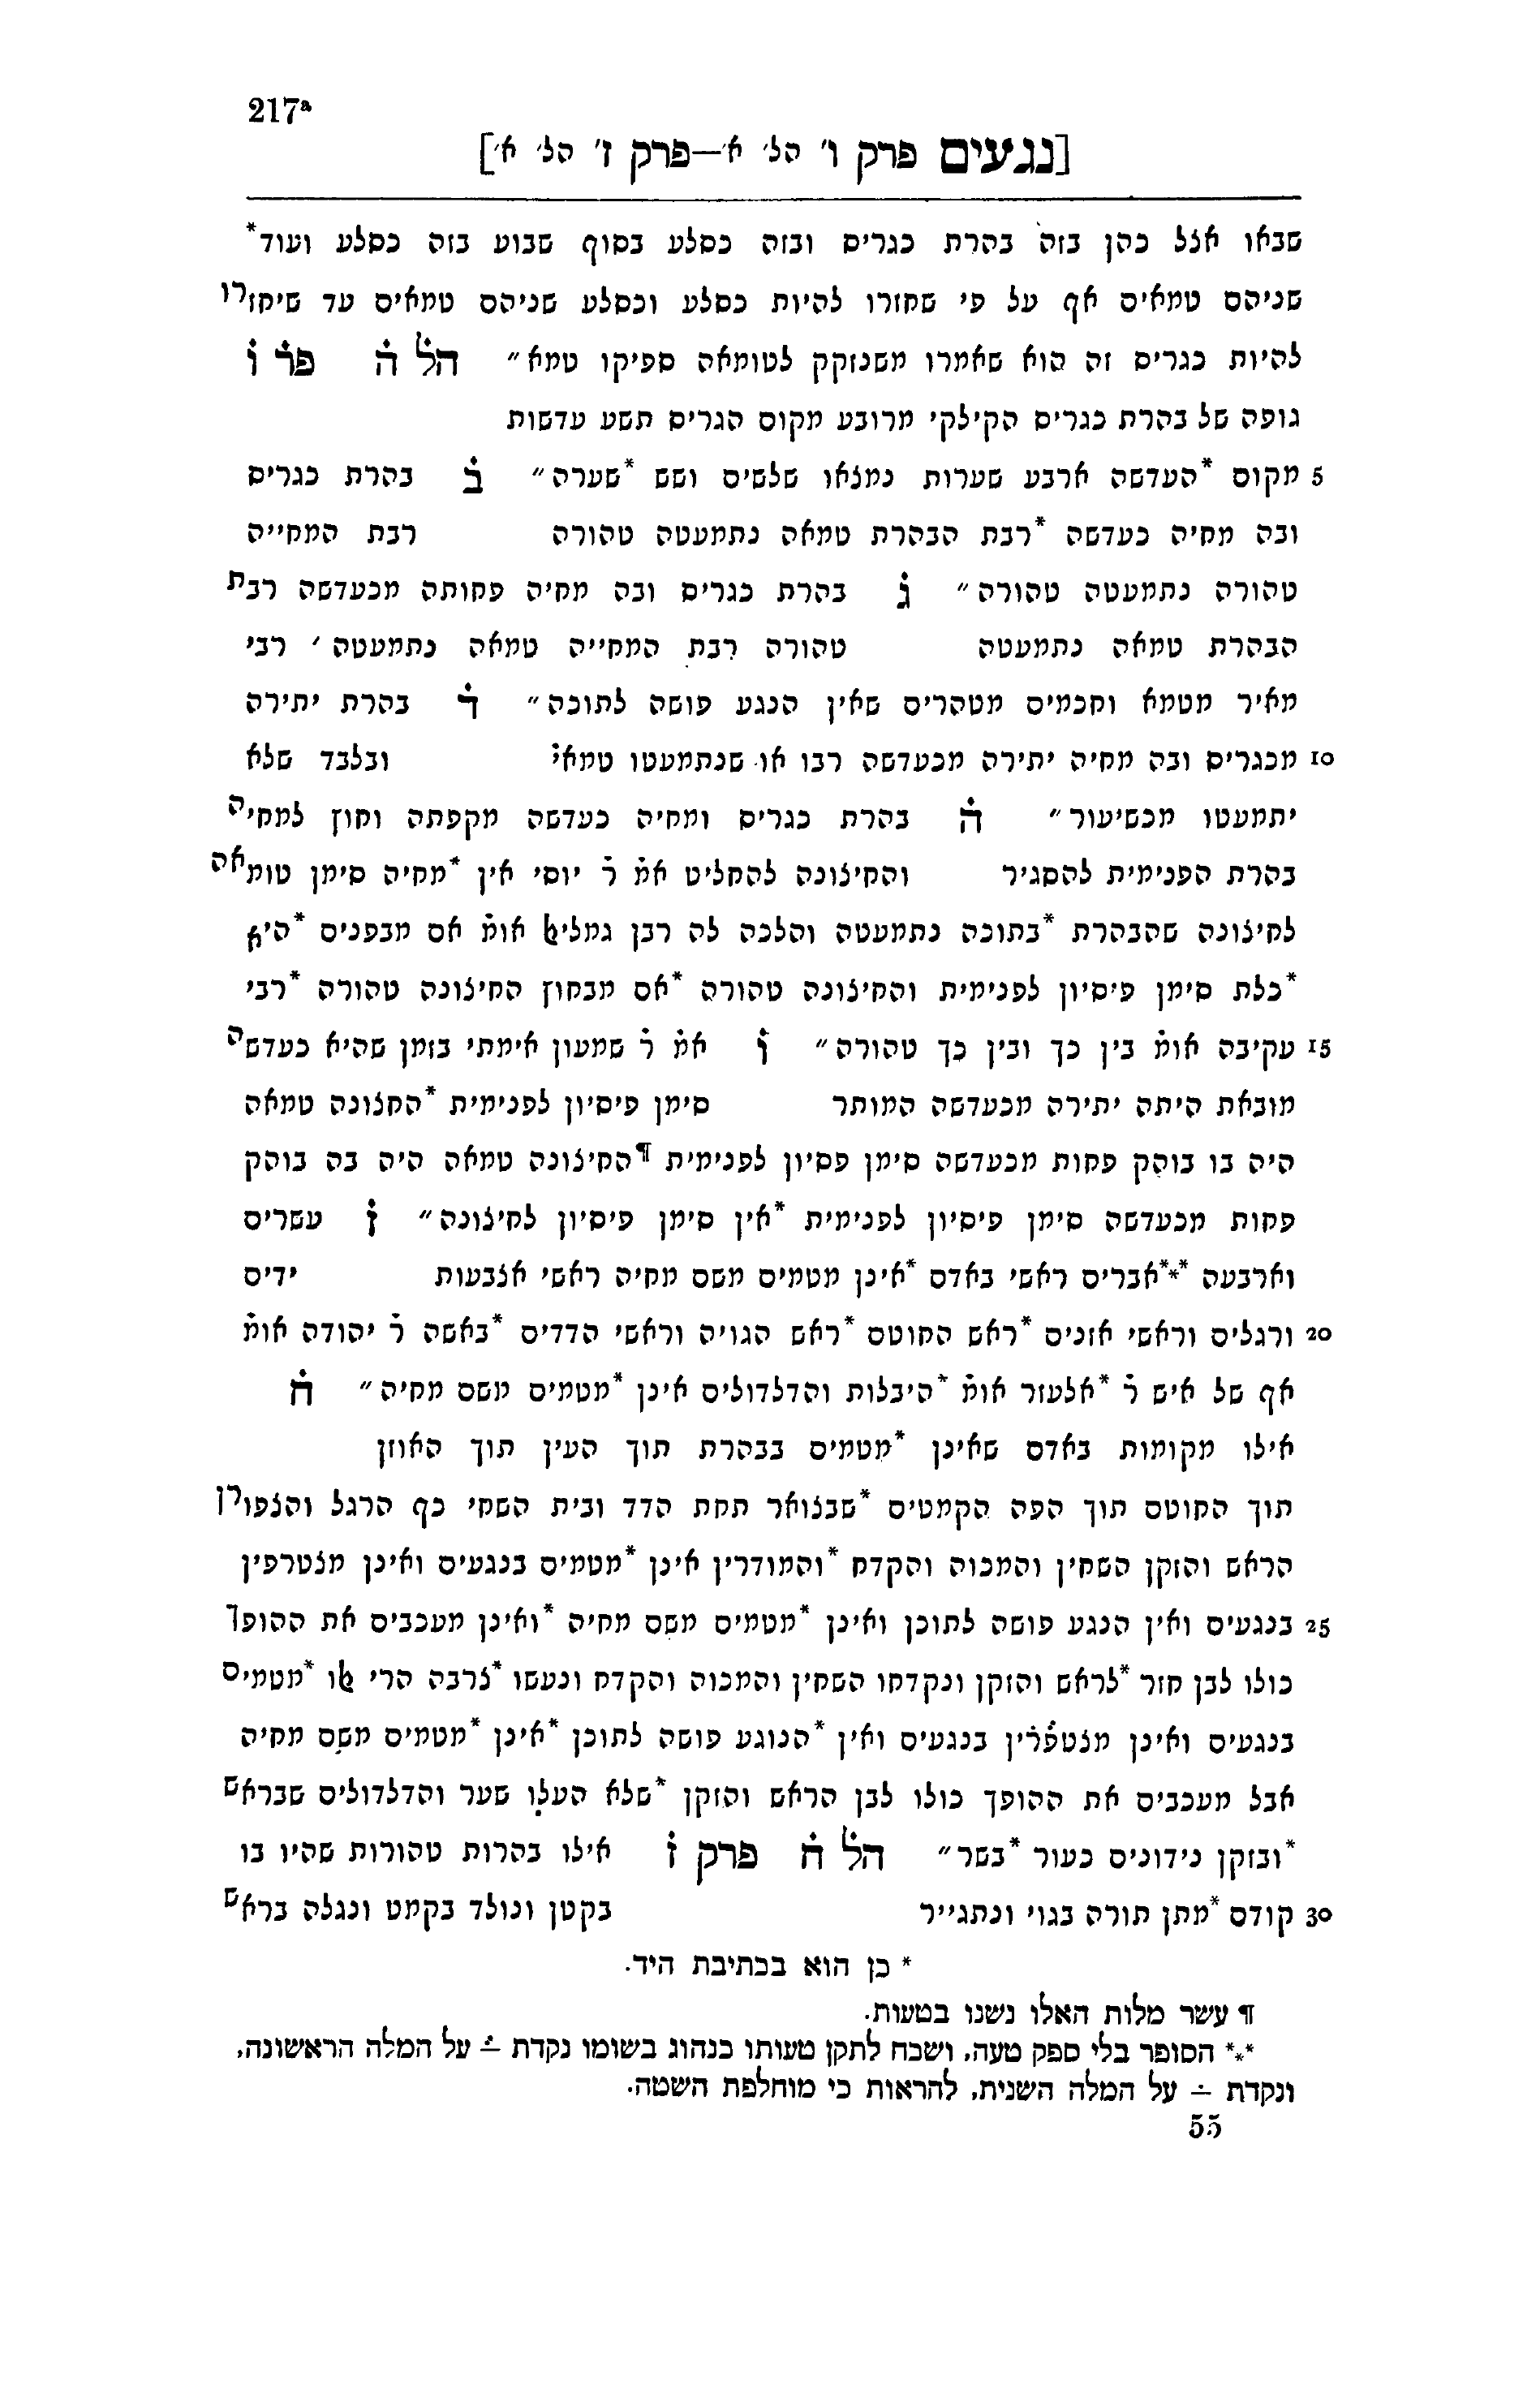 217ª
[נגעים פרק ו' הל' א'—פרק ז' הל' א']
שבאו אצל כהן בזה בהרת כגריס ובזה כסלע בסוף שבוע בזה כסלע ועוד*
שניהם טמאים אף על פי שחזרו להיות כסלע וכסלע שניהם טמאים עד שיחזרו
להיות כגריס זה הוא שאמרו משנזקק לטומאה ספיקו טמא״ הל ה פר ו
גופה של בהרת כגריס הקילקי מרובע מקום הגריס תשע עדשות
5 מקום *העדשה ארבע שערות נמצאו שלשים ושש *שערה״ ב בהרת כגריס
ובה מחיה כעדשה *רבת הבהרת טמאה נתמעטה טהורה רבת המחייה
טהורה נתמעטה טהורה״ ג בהרת כגריס ובה מחיה פחותה מכעדשה רבת
הבהרת טמאה נתמעטה טהורה רבת המחייה טמאה נתמעטה׳ רבי
מאיר מטמא וחכמים מטהרים שאין הנגע פושה לתוכה״ ד בהרת יתירה
10 מכגריס ובה מחיה יתירה מכעדשה רבו או שנתמעטו טמאי̇ ובלבד שלא
יתמעטו מכשיעור״ ה בהרת כגריס ומחיה כעדשה מקפתה וחוץ למחיה
בהרת הפנימית להסגיר והחיצונה להחליט אמ̇ ר̇ יוסי אין *מחיה סימן טומאה
לחיצונה שהבהרת *בתוכה נתמעטה והלכה לה רבן גמליﭏ אומ̇ אם מבפנים *היא
*כלת סימן פיסיון לפנימית והחיצונה טהורה *אם מבחוץ החיצונה טהורה *רבי
15 עקיבה אומ̇ בין כך ובין כך טהורה״ ו אמ̇ ר̇ שמעון אימתי בזמן שהיא כעדשה
מובאת היתה יתירה מכעדשה המותר סימן פיסיון לפנימית *החצונה טמאה
היה בו בוהק פחות מכעדשה סימן פסיון לפנימית ¶החיצונה טמאה היה בה בוהק
פחות מכעדשה סימן פיסיון לפנימית *אין סימן פיסיון לחיצונה״ ז עשרים
וארבעה ***אברים ראשי באדם *אינן מטמים משם מחיה ראשי אצבעות ידים
20 ורגלים וראשי אזנים *ראש החוטם *ראש הגויה וראשי הדדים *באשה ר̇ יהודה אומ̇
אף של איש ר̇ *אלעזר אומ̇ *היבלות והדלדולים אינן *מטמים משם מחיה״ ח
אילו מקומות באדם שאינן *מטמים בבהרת תוך העין תוך האוזן
תוך החוטם תוך הפה הקמטים *שבצואר תחת הדד ובית השחי כף הרגל והצפורן
הראש והזקן השחין והמכוה והקדח *והמודרין אינן *מטמים בנגעים ואינן מצטרפין
25 בנגעים ואין הנגע פושה לתוכן ואינן *מטמים משם מחיה *ואינן מעכבים את ההופך
כולו לבן חזר *לראש והזקן ונקדחו השחין והמכוה והקדח ונעשו *צרבה הרי ﭏו *מטמים
בנגעים ואינן מצטפ̇ר̇ין בנגעים ואין *הנוגע פושה לתוכן *אינן *מטמים משם מחיה
אבל מעכבים את ההופך כולו לבן הראש והזקן *שלא העלו שער והדלדולים שבראש
*ובזקן נידונים כעור *בשר״ הל ח פרק ז אילו בהרות טהורות שהיו בו
30 קודם *מתן תורה בגוי ונתגייר בקטן ונולד בקמט ונגלה בראש
* כן הוא בכתיבת היד.
¶ עשר מלות האלו נשנו בטעות.
*** הסופר בלי ספק טעה, ושכח לתקן טעותו כנהוג בשומו נקדת ∸ על המלה הראשונה,
ונקדת ∸ על המלה השנית, להראות כי מוחלפת השטה.
55